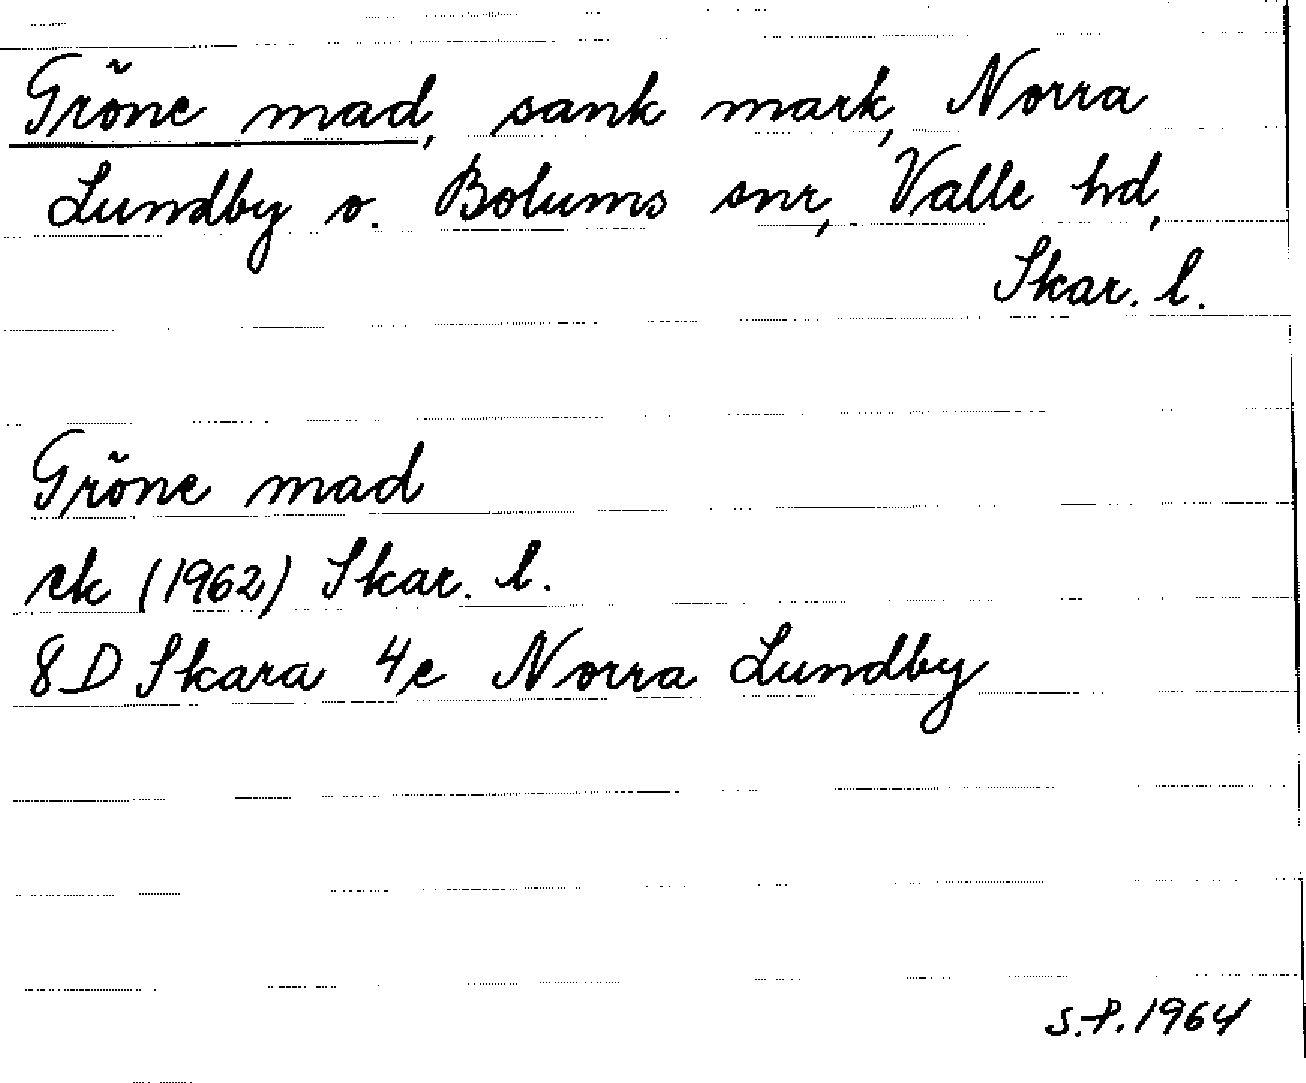 Gröne mad, sank mark, Norra
Lundby o. Bolums snr, Valle hd,
Skar. l.
Gröne mad
ek (1962) Skar. l.
8D Skara 4e Norra Lundby
S.P. 1964